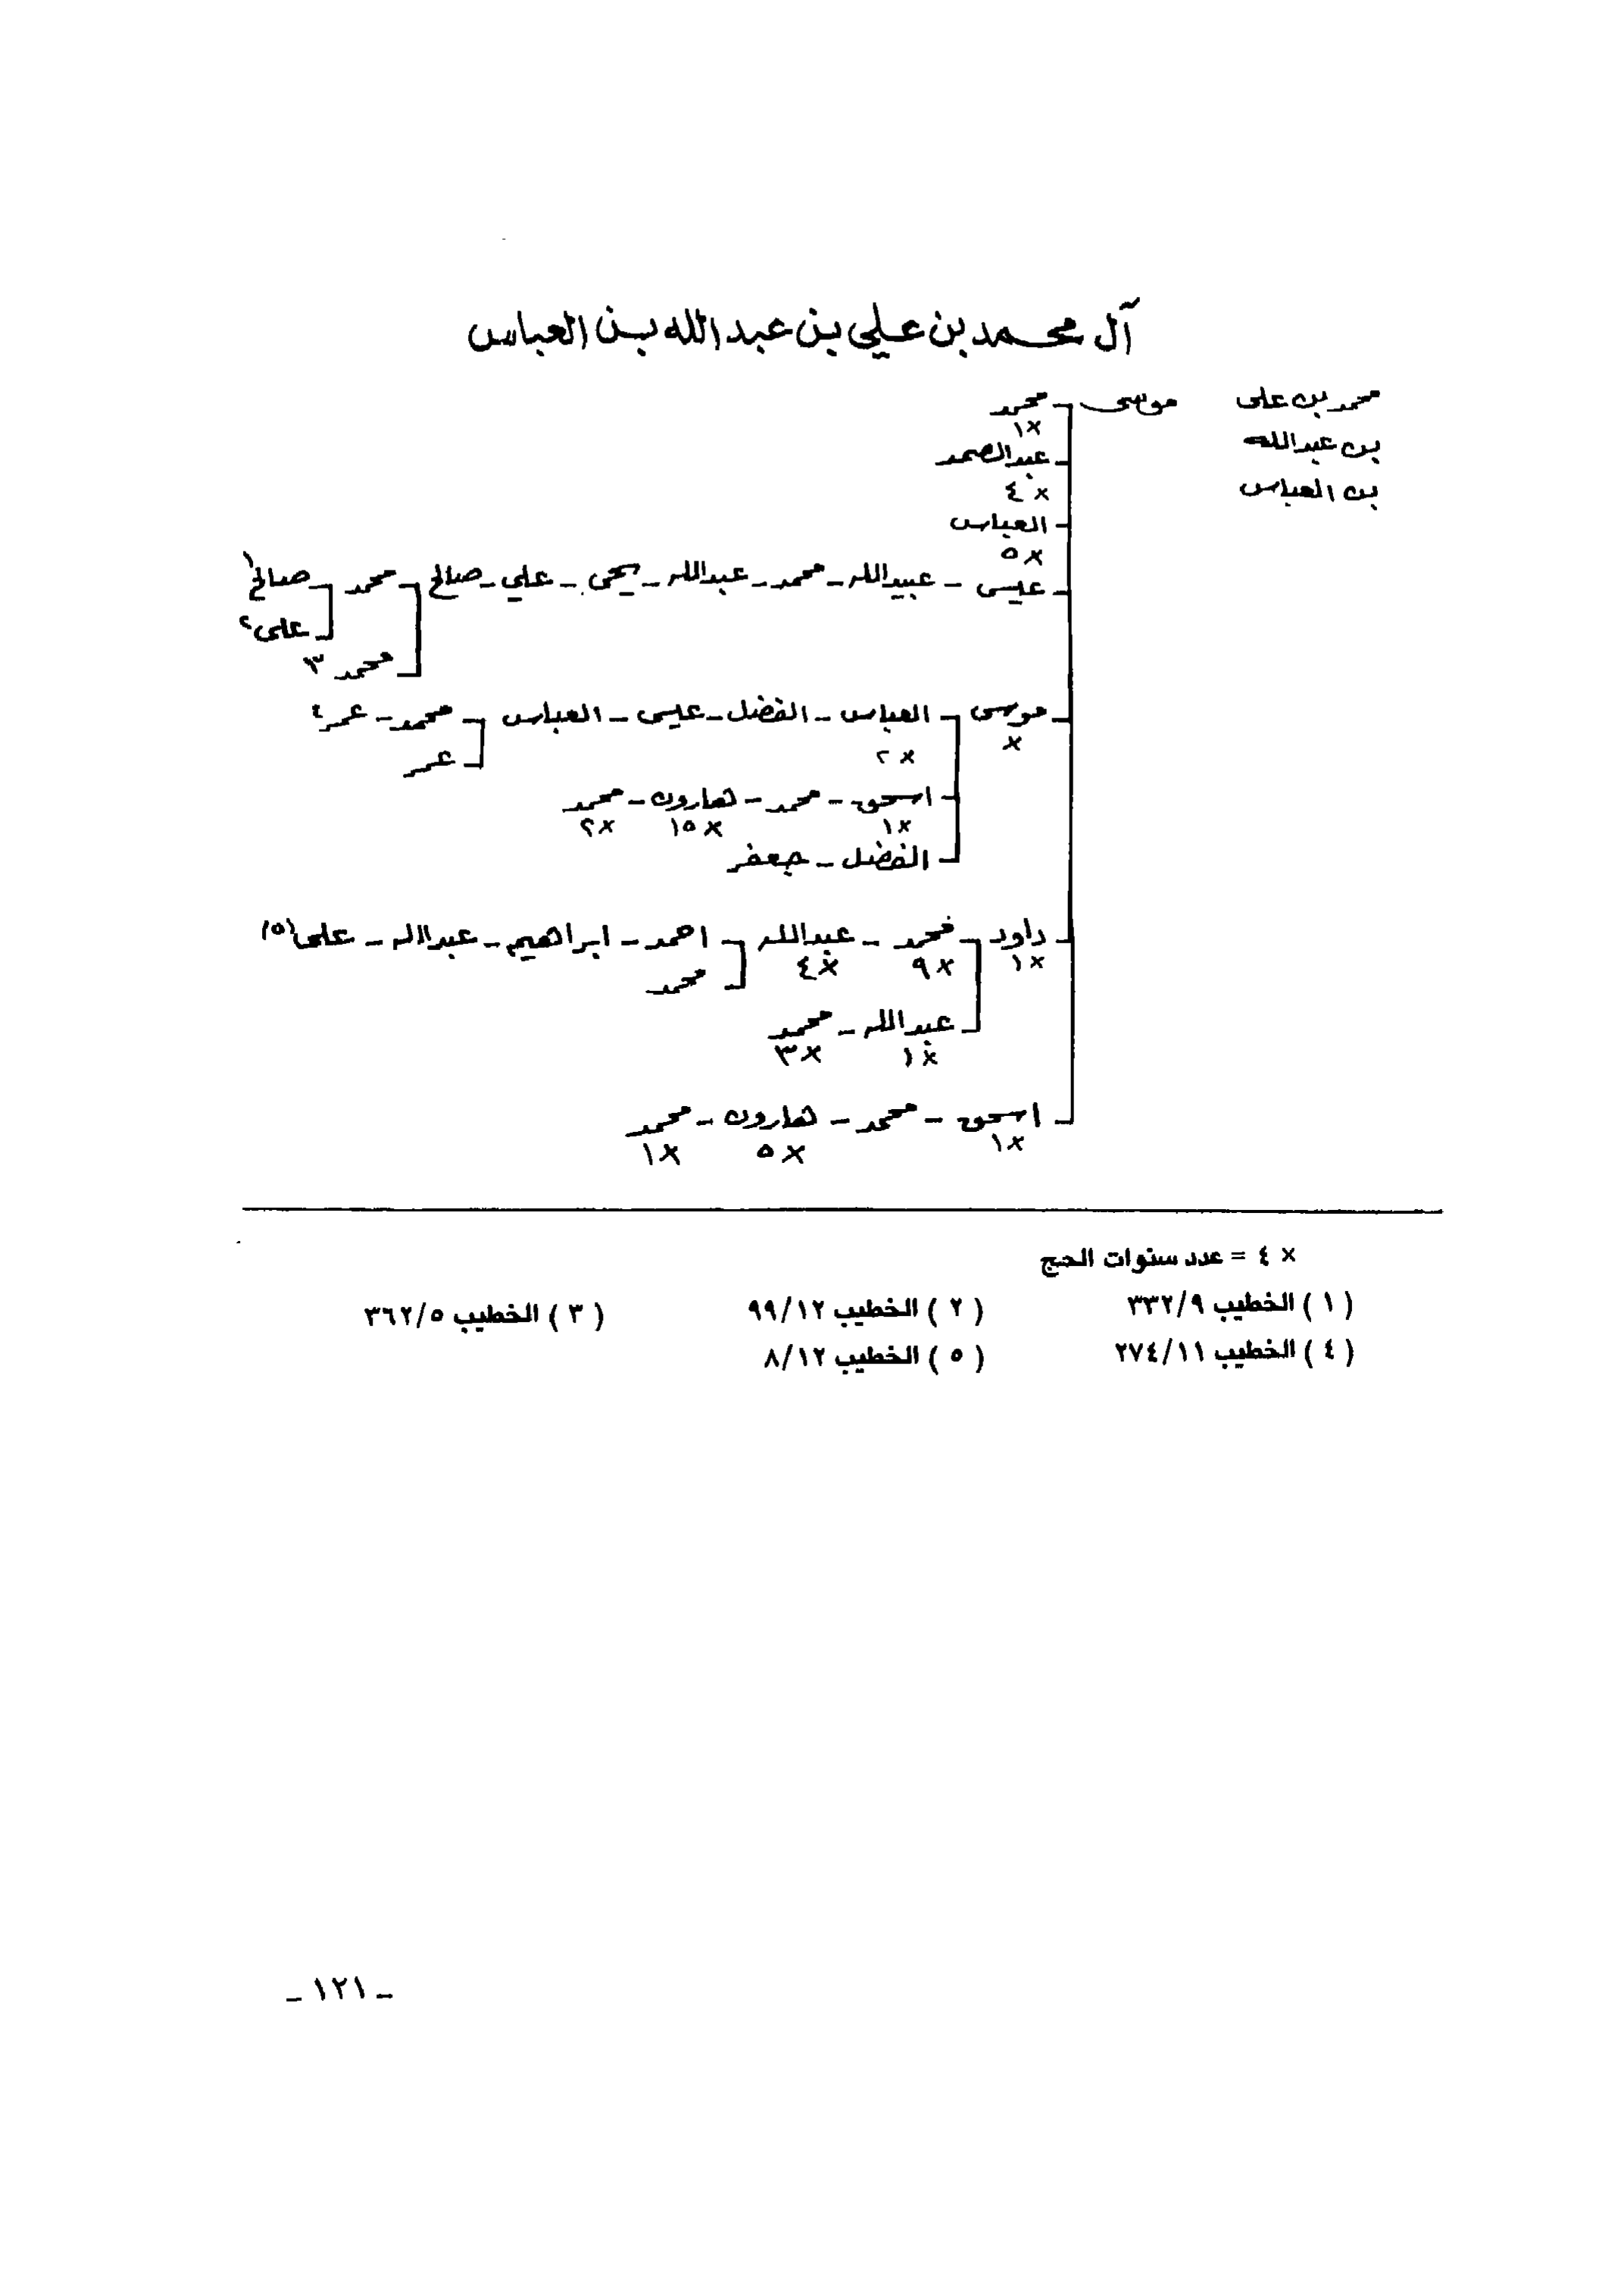 آل محمد بن علي بن عبد الله بن العباس
محمد بن على موسى محمد
×١
بن عبدالله عبدالصمد
×٤
بن العباس
العباس
×٥
عيسى - عبيدالله - محمد - عبدالله - يحيى - علي - صالح محمد صالح١
على٢
محمد ٣
موسى العباس - الفضل - عيسى - العباس محمد - عمر٤
× ×٢ عمر
اسحق - محمد - هارون - محمد
×١ ×١٥ ×٢
الفضل - جعفر
داود محمد - عبدالله احمد - ابراهيم - عبدالله - على(٥)
×١ ×٩ ×٤ محمد
عبدالله - محمد
×١ ×٣
اسحق - محمد - هارون - محمد
×١ ×٥ ×١
× ٤ = عدد سنوات الحج
( ١ ) الخطيب ٣٣٢/٩ ( ٢ ) الخطيب ٩٩/١٢ ( ٣ ) الخطيب ٣٦٢/٥
( ٤ ) الخطيب ٢٧٤/١١ ( ٥ ) الخطيب ٨/١٢
ـ ١٢١ ـ